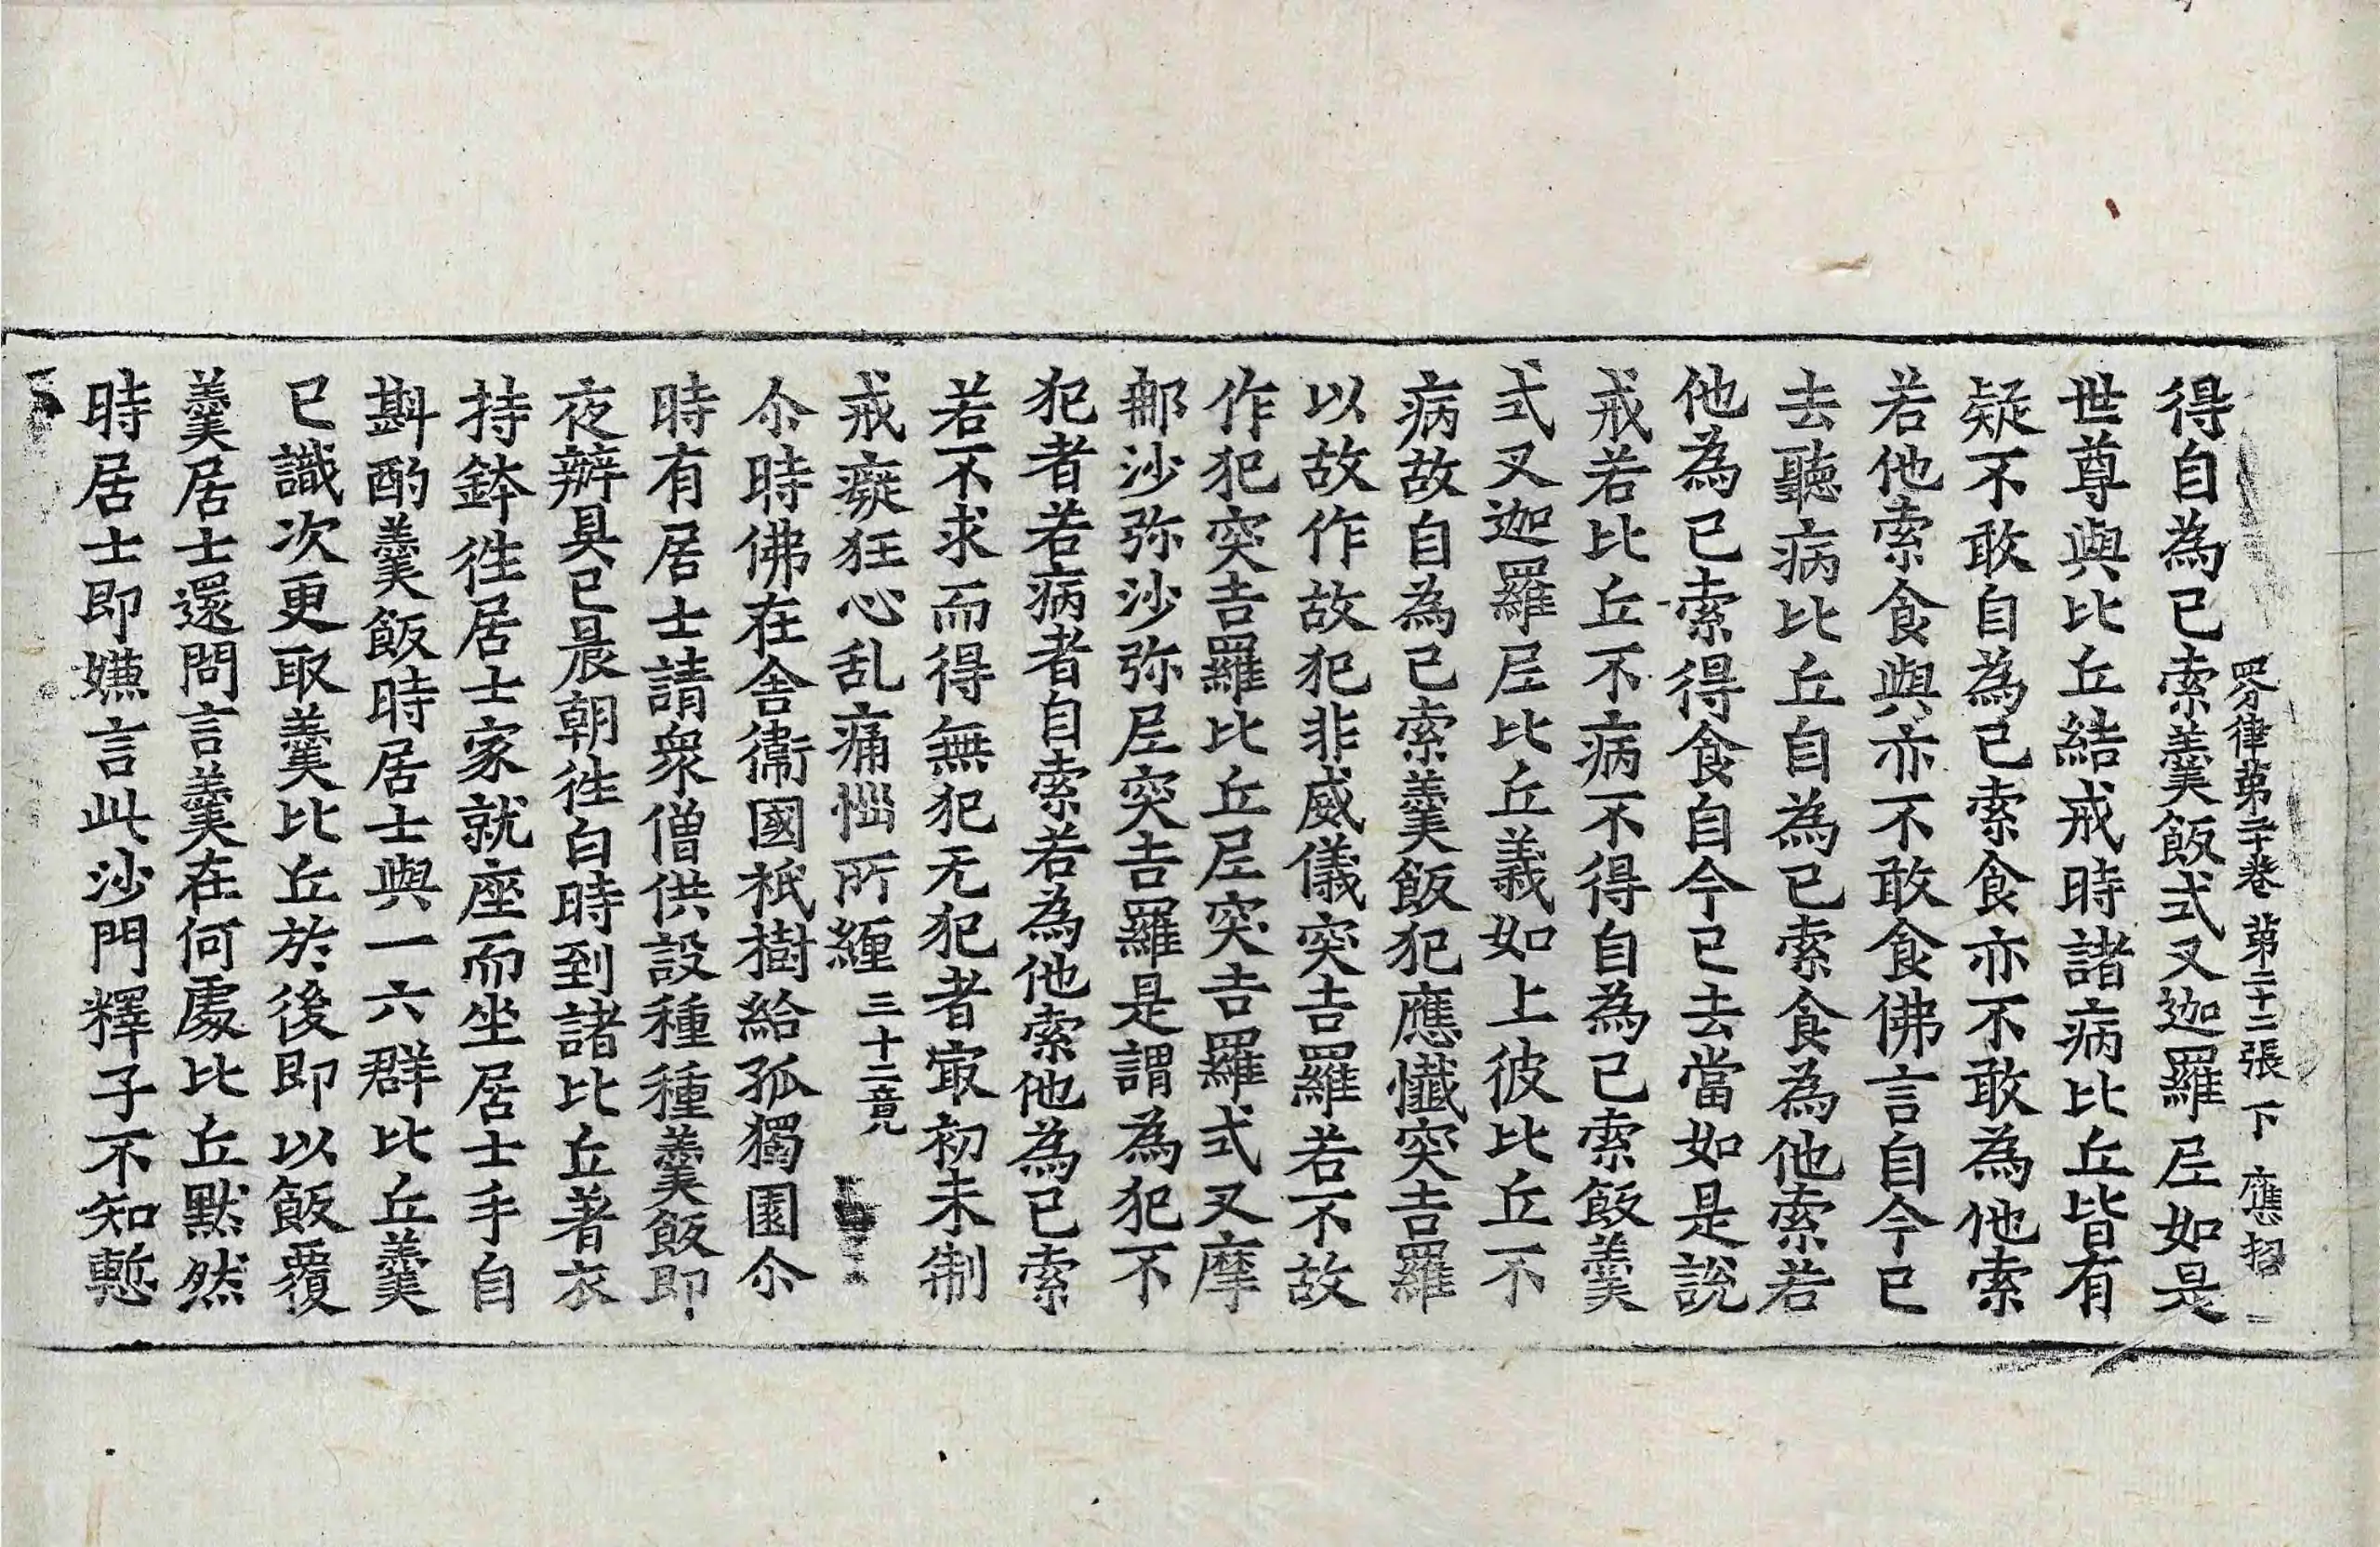 四分律第二十卷 第二十二張 下 應 招
得自為已索羹飯式叉迦羅尼如是
世尊與比丘結戒時諸病比丘皆有
疑不敢自為已索食亦不敢為他索
若他索食與亦不敢食佛言自今已
去聽病比丘自為已索食為他索若
他為已索得食自今已去當如是說
戒若比丘不病不得自為已索飯羹
式叉迦羅尼比丘義如上彼比丘不
病故自為已索羹飯犯應懺突吉羅
以故作故犯非威儀突吉羅若不故
作犯突吉羅比丘尼突吉羅式叉摩
那沙弥沙弥尼突吉羅是謂為犯不
犯者若病者自索若為他索他為已索
若不求而得無犯无犯者㝡初未制
戒癡狂心乱痛惱所纏 三十二竟
尒時佛在舍衛國祇樹給孤獨園尒
時有居士請衆僧供設種種羹飯即
夜辦具已晨朝徃白時到諸比丘著衣
持鉢徃居士家就座而坐居士手自
斟酌羹飯時居士與一六群比丘羹
已識次更取羹比丘於後即以飯覆
羹居士還問言羹在何處比丘默然
時居士即嫌言此沙門釋子不知慙